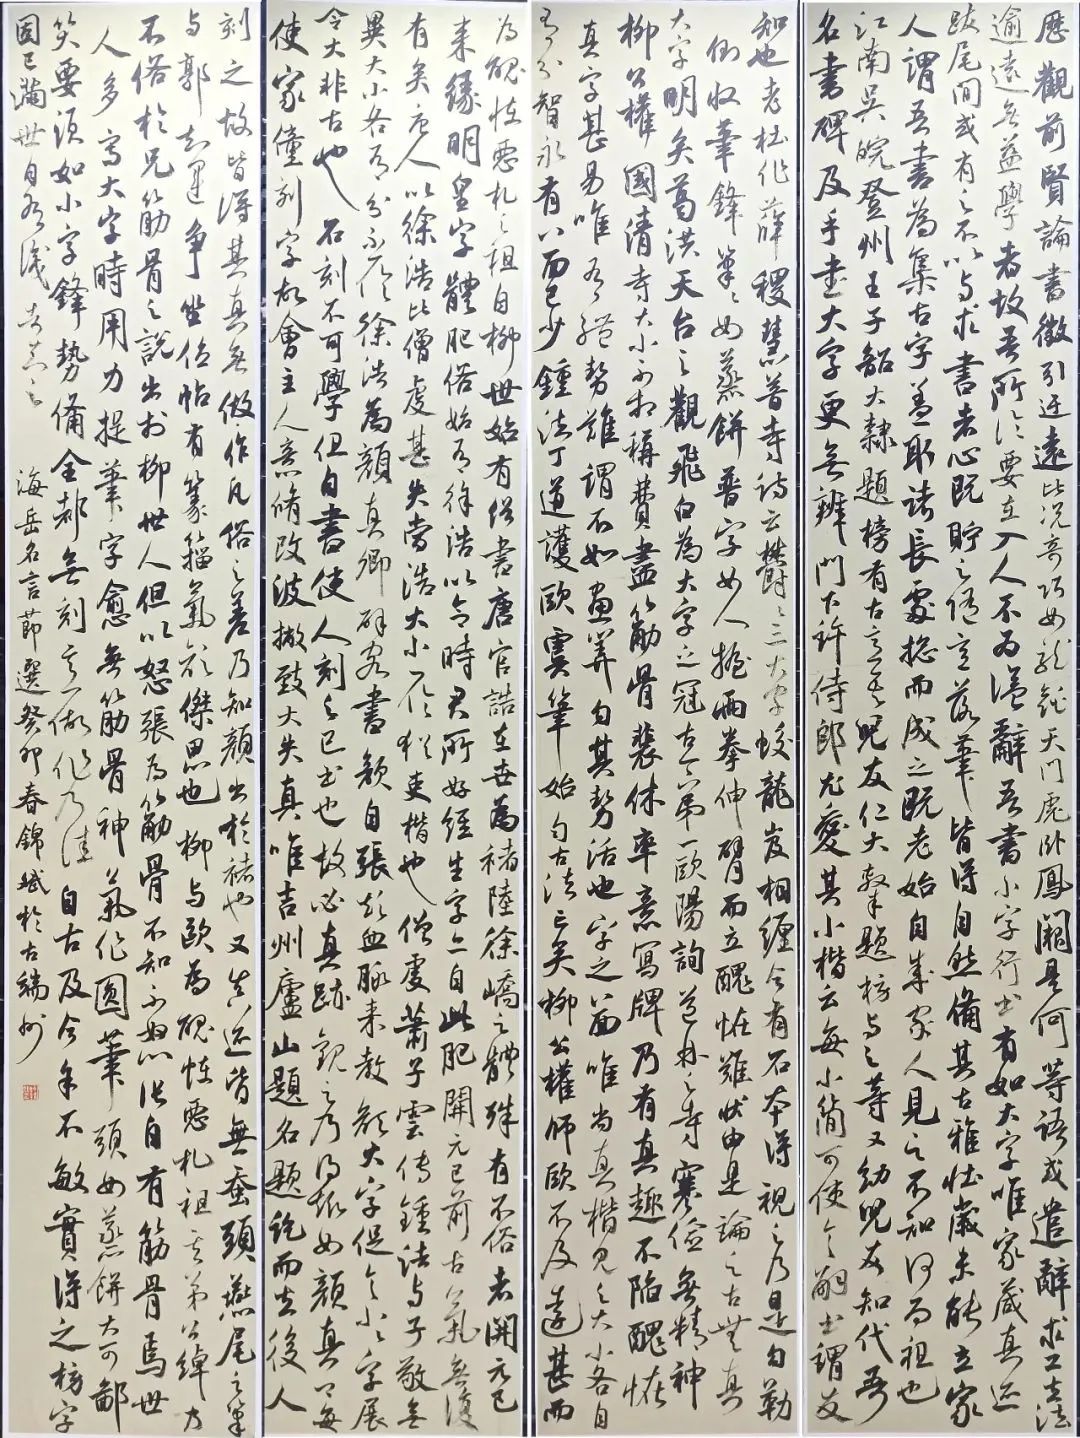 歷觀前賢論書徵引迂遠比況奇巧如龍跳天門虎卧鳳闕是何等語或遣辭求工去法
逾遠無益學者故吾所論要在入人不為溢辭吾書小字行書有如大字唯家藏真迹
跋尾間或有之不以與求書者心既貯之隨意落筆皆得自然備其古雅壯歲未能立家
人謂吾書為集古字蓋取諸長處總而成之既老始自成家人見之不知何為祖也
江南吳皖登州王子韶大隸題榜有古意吾兒友仁大隸題榜與之等又幼兒友知代吾
名書碑及手書大字更無辨門下許侍郎尤愛其小楷云每小簡可使令嗣書謂友
知也老杜作薛稷慧普寺詩云鬱鬱三大字蛟龍岌相纏今有石本得視之乃是勾勒
倒收筆鋒筆筆如蒸餅普字如人握兩拳伸臂而立醜怪難狀由是論之古無真
大字明矣葛洪天台之觀飛白為大字之冠古今第一歐陽詢道林之寺寒儉無精神
柳公權國清寺大小不相稱費盡筋骨裴休率意寫牌乃有真趣不陷醜怪
真字甚易唯有體勢難謂不如畫筭勻其勢活也字之八面唯尚真楷見之大小各自
有分智永有八面已少鍾法丁道護歐虞筆始勻古法亡矣柳公權師歐不及遠甚而
為醜怪惡札之祖自柳世始有俗書唐官誥在世為褚陸徐嶠之體殊有不俗者開元已
來緣明皇字體肥俗始有徐浩以合時君所好經生字亦自此肥開元已前古氣無復
有矣唐人以徐浩比僧虔甚失當浩大小一倫猶吏楷也僧虔蕭子雲傳鍾法與子敬無
異大小各有分不一倫徐浩為顏真卿辟客書韻自張顛血脈來教顏大字促令小小字展
令大非古也石刻不可學但自書使人刻之已非己書也故必真跡觀之乃得趣如顏真卿每
使家僮刻字故會主人意修改波撇致大失真唯吉州廬山題名題訖而去後人
刻之故皆得其真無做作凡俗之差乃知顏出於褚也又真迹皆無蚕頭燕尾之筆
與郭知運爭坐位帖有篆籀氣顏傑思也柳與歐為醜怪惡札祖其弟公綽乃
不俗於兄筋骨之說出於柳世人但以怒張為筋骨不知不怒張自有筋骨焉世
人多寫大字時用力捉筆字愈無筋骨神氣作圓筆頭如蒸餅大可鄙
笑要須如小字鋒勢備全都無刻意做作乃佳自古及今余不敏實得之榜字
固已滿世自有識者知之 海岳名言節選癸卯春錦斌於古端州